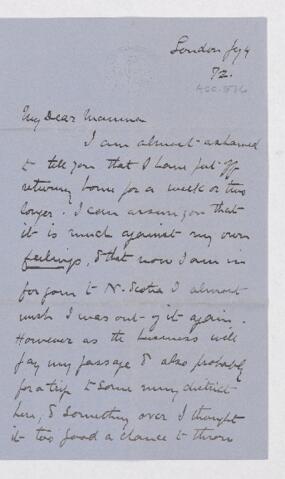 London Jy 4
72.
My Dear Mamma
I am almost ashamed
to tell you that I have put off
returning home for a week or two
longer. I can assure you that
it is much against my own
feelings, & that now I am in
for going to N. Scotia I almost
wish I was out of it again.
However as the business will
pay my passage & also probably
for a trip to some mining district
here, & something over I thought
it too good a chance to throw